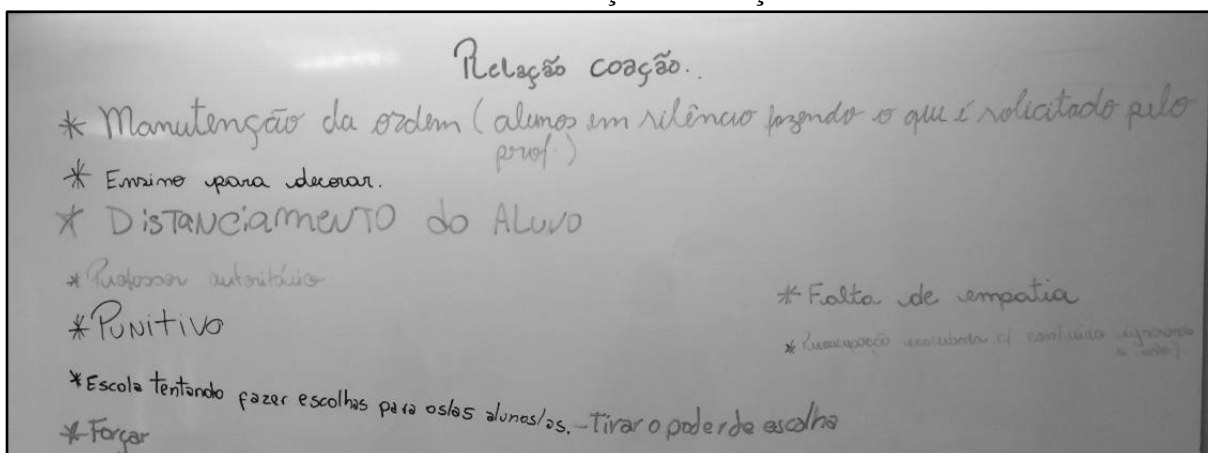 Relação coação..
* Manutenção da ordem (alunos em silêncio fazendo o que é solicitado pelo
prof.)
* Ensino para decorar.
* DISTANCIAMENTO do ALUNO
* Professor autoritário
* Falta de empatia
* PUNITIVO
* c/ conteúdo
* Escola tentando fazer escolhas para os/as alunos/as. - Tirar o poder de escolha
* Forçar